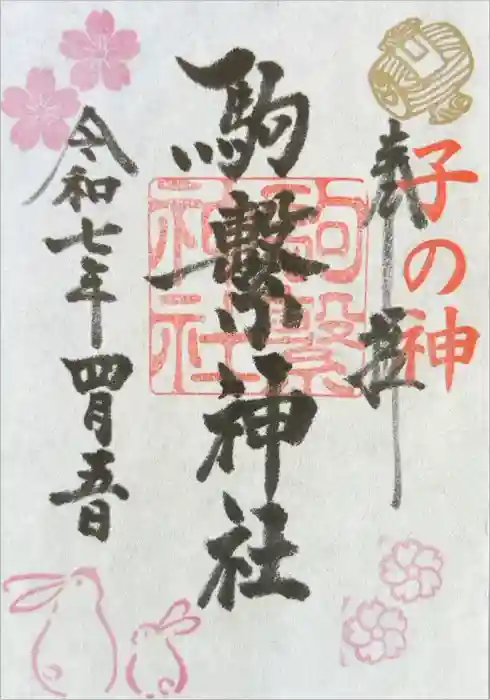 奉拝
子の神
駒繋神社
駒繋
神社
令和七年四月五日